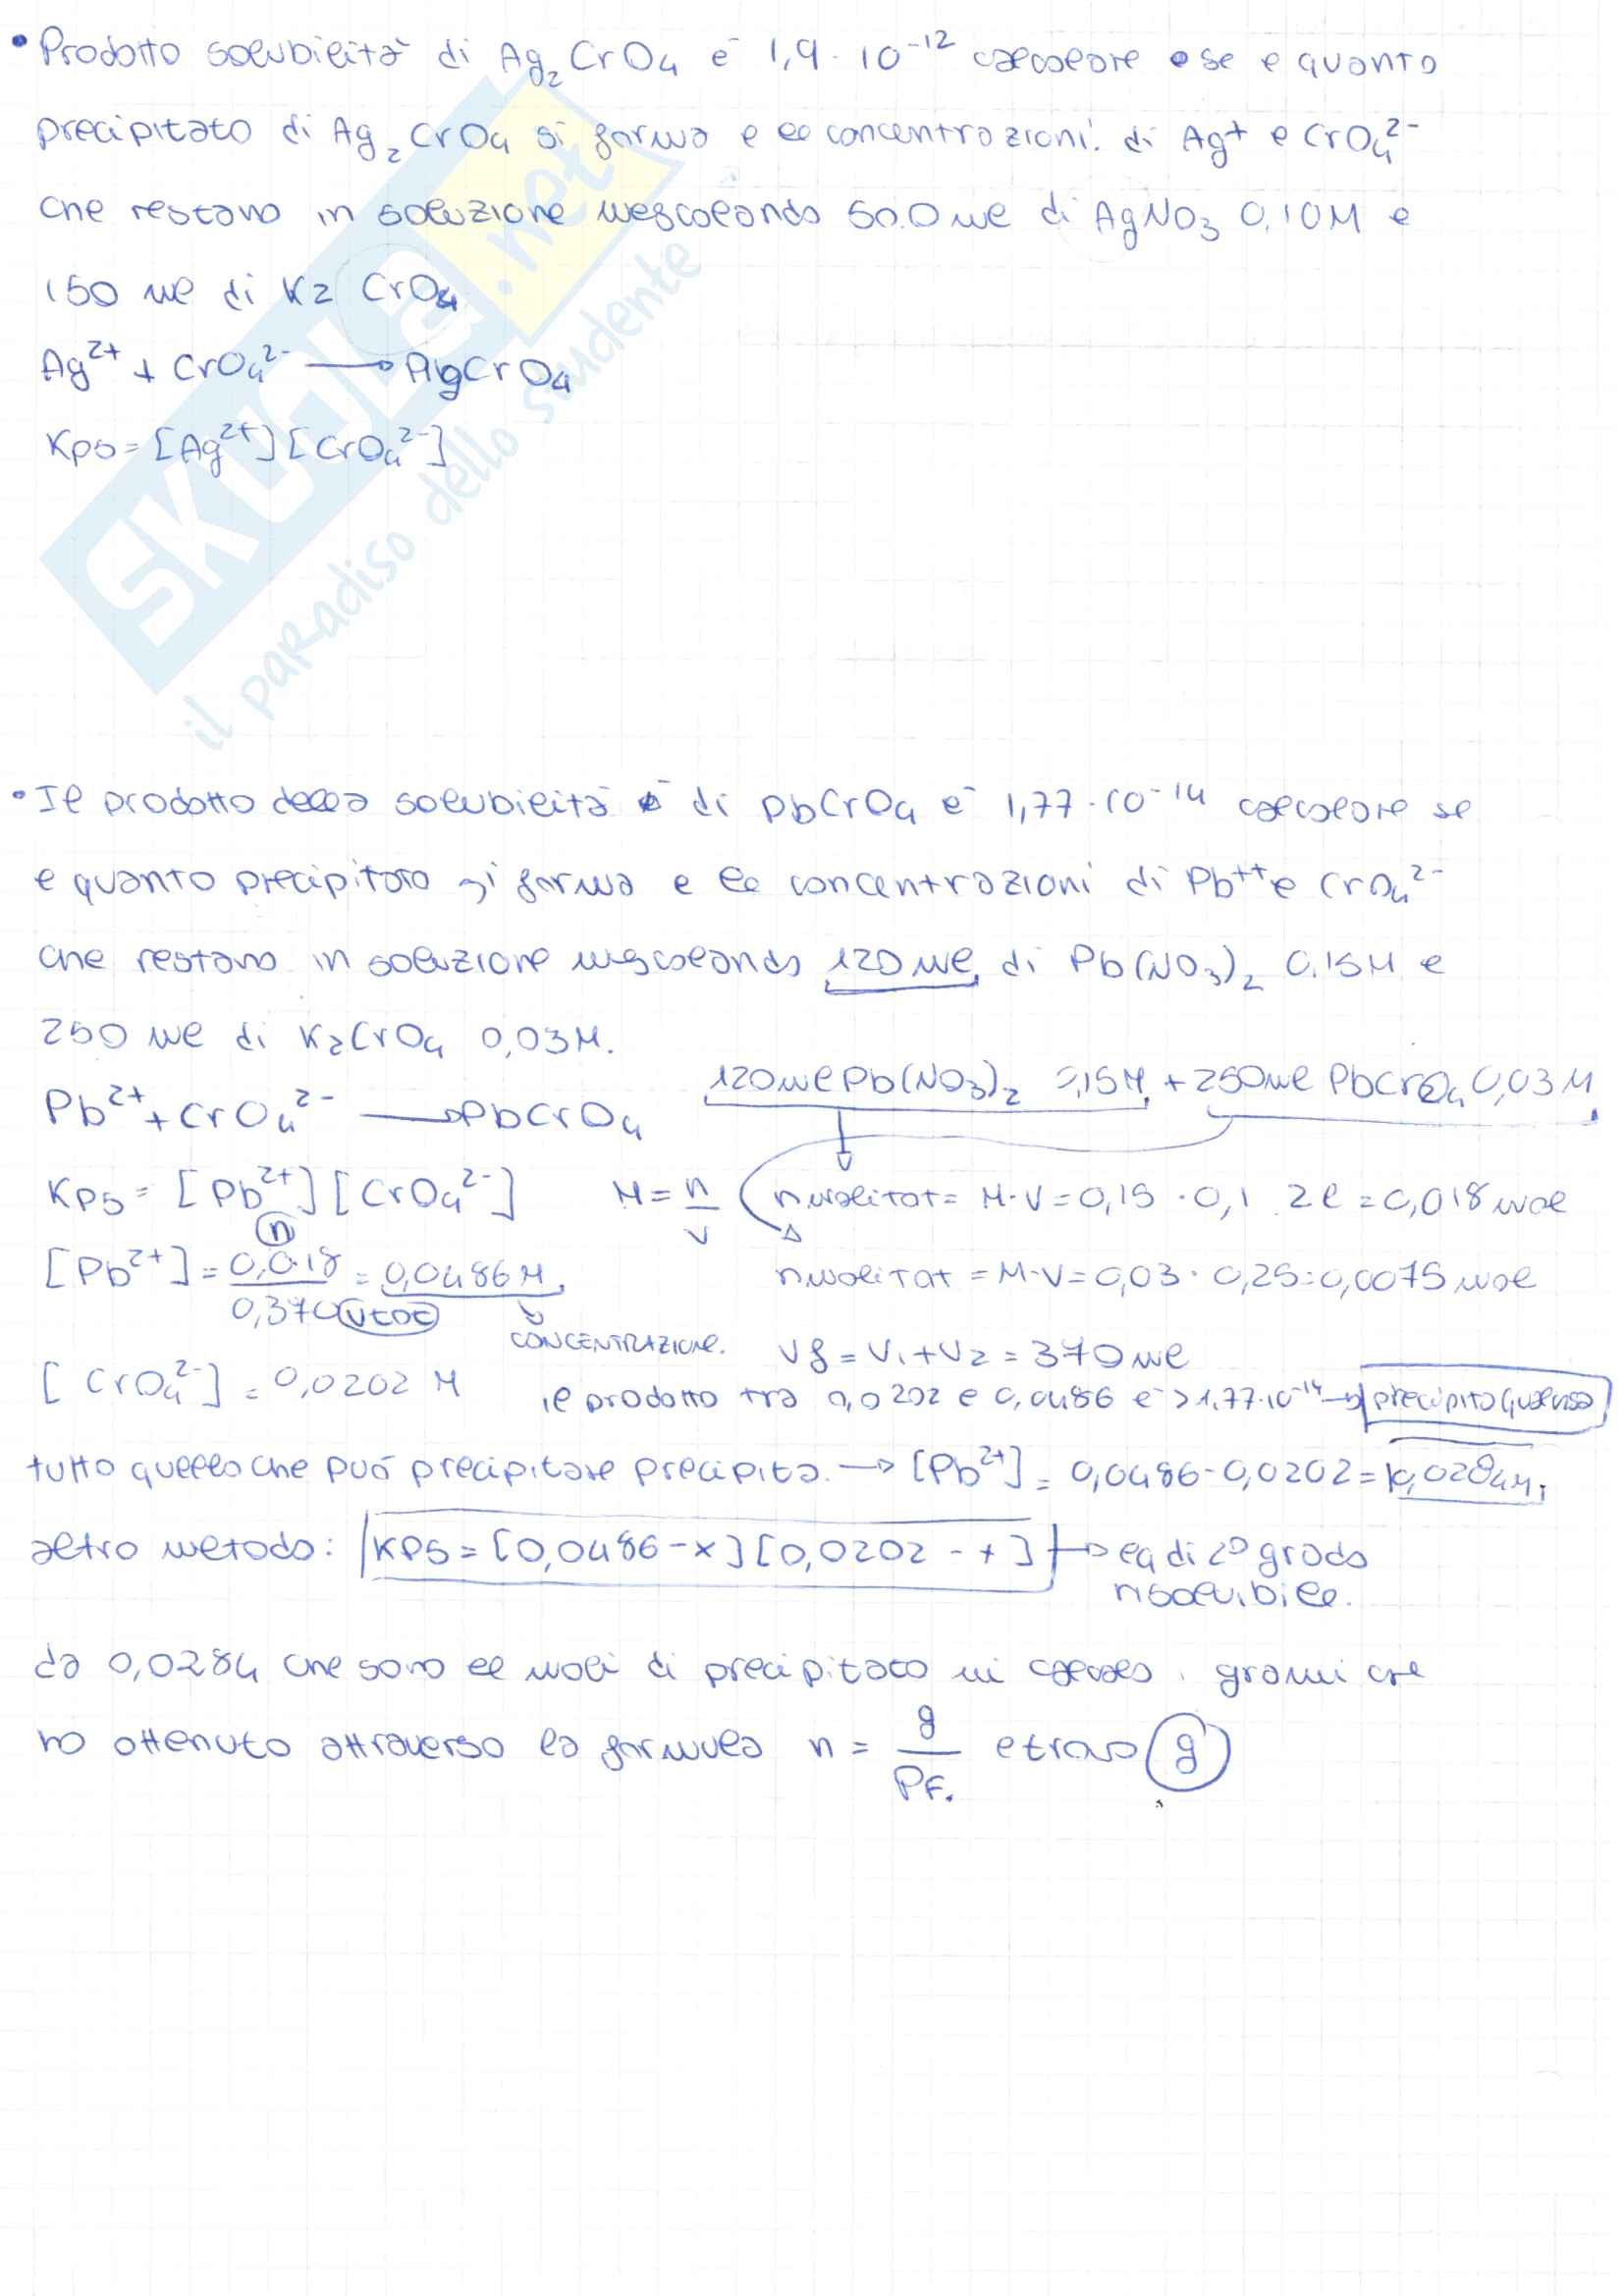 • Prodotto solubilità di Ag₂CrO₄ è 1,9 · 10⁻¹² calcolare se e quanto
precipitato di Ag₂CrO₄ si forma e le concentrazioni di Ag⁺ e CrO₄²⁻
che restano in soluzione mescolando 50.0 ml di AgNO₃ 0,10M e
150 ml di K₂ CrO₄
Ag²⁺ + CrO₄²⁻ → AgCrO₄
Kps = [Ag²⁺][CrO₄²⁻]
SKUOLA.net
il paradiso dello studente
• Il prodotto della solubilità di PbCrO₄ è 1,77·10⁻¹⁴ calcolare se
e quanto precipitato si forma e le concentrazioni di Pb⁺⁺ e CrO₄²⁻
che restano in soluzione mescolando 120 ml di Pb(NO₃)₂ 0,15M e
250 ml di K₂CrO₄ 0,03M.
120ml Pb(NO₃)₂ 0,15M + 250ml PbCrO₄ 0,03M
Pb²⁺ + CrO₄²⁻ → PbCrO₄
Kps = [Pb²⁺][CrO₄²⁻] M = n/V n molitot = M·V = 0,15 · 0,12l = 0,018 mol
[Pb²⁺] = 0,018 (n) / 0,370 (Vtot) = 0,0486M n moli tot = M·V = 0,03 · 0,25 = 0,0075 mol
CONCENTRAZIONE. Vf = V₁+V₂ = 370 ml
[CrO₄²⁻] = 0,0202 M il prodotto tra 0,0202 e 0,0486 è > 1,77·10⁻¹⁴ → precipita qualcosa
tutto quello che può precipitare precipita. → [Pb²⁺] = 0,0486-0,0202 = 0,0284M.
altro metodo: KPS = [0,0486-x][0,0202-x] → eq di 2° grado
risolvibile.
da 0,0284 che sono le moli di precipitato mi calcolo i grammi che
ho ottenuto attraverso la formula n = g/PF. e trovo g